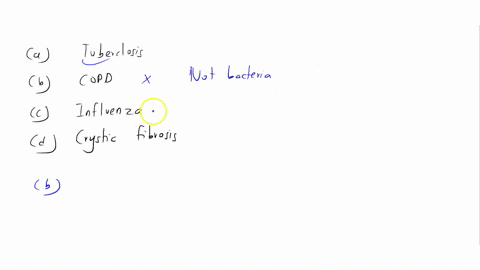 (a) Tuberclosis
(b) COPD x Not bacteria
(c) Influenza
(d) Crystic fibrosis
(b)